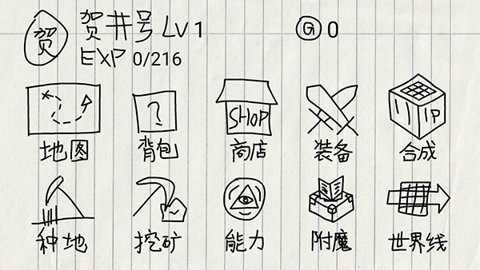 贺 贺井号 LV1 G 0
EXP 0/216
SHOP
IP
地图 背包 商店 装备 合成
种地 挖矿 能力 附魔 世界线